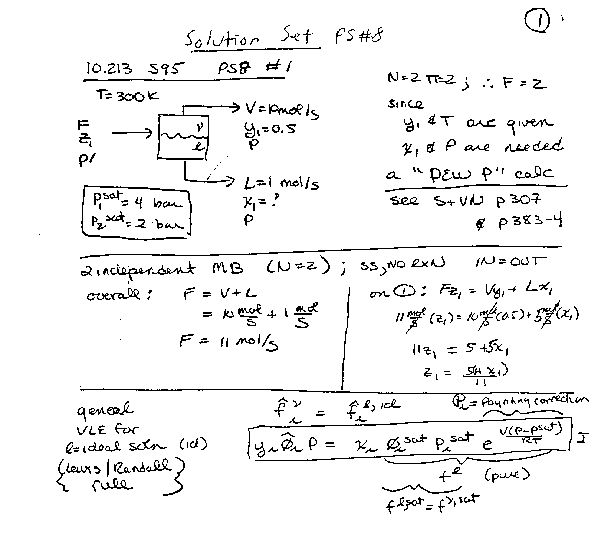 ①
Solution Set PS#8
10.213 S95 PS8 #1
T=300K
F
z₁
P'
v
l
V=10mol/s
y₁=0.5
P
L=1 mol/s
x₁=?
P
P₁ˢᵃᵗ=4 bar
P₂ˢᵃᵗ=2 bar
N=2 π=2; ∴ F=2
since
y₁ & T are given
x₁ & P are needed
a "DEW P" calc
see S+VN p307
& p383-4
2 independent MB (N=2); SS, NO RXN IN=OUT
overall: F = V+L
= 10 mol/s + 1 mol/s
F = 11 mol/s
on ①: Fz₁ = Vy₁ + Lx₁
11 mol/s (z₁) = 10 mol/s (0.5) + 5 mol/s (x₁)
11z₁ = 5+5x₁
general
VLE for
l=ideal soln (id)
{Lewis/Randall
rule}
f̂ᵢᵛ = f̂ᵢˡ,ⁱᵈ
℗ᵢ = poynting correction
yᵢ φ̂ᵢ P = xᵢ φᵢˢᵃᵗ Pᵢˢᵃᵗ e^(V(P-Pˢᵃᵗ)/RT) I
fˡ (pure)
fˡ,ˢᵃᵗ = fᵛ,ˢᵃᵗ